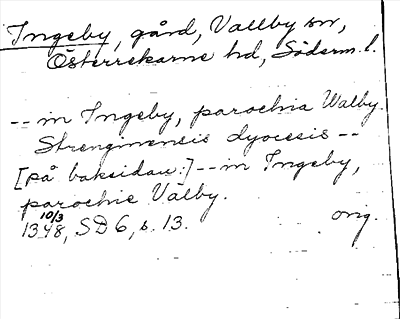 Ingeby, gård, Vallby sn,
Österrekarne hd, Söderm. l.
-- in Ingeby, parochia Walby
Strenginensis dyocesis --
[på baksidan:] -- in Ingeby,
parochie Valby.
10/3
1348, SD 6, s. 13. orig.